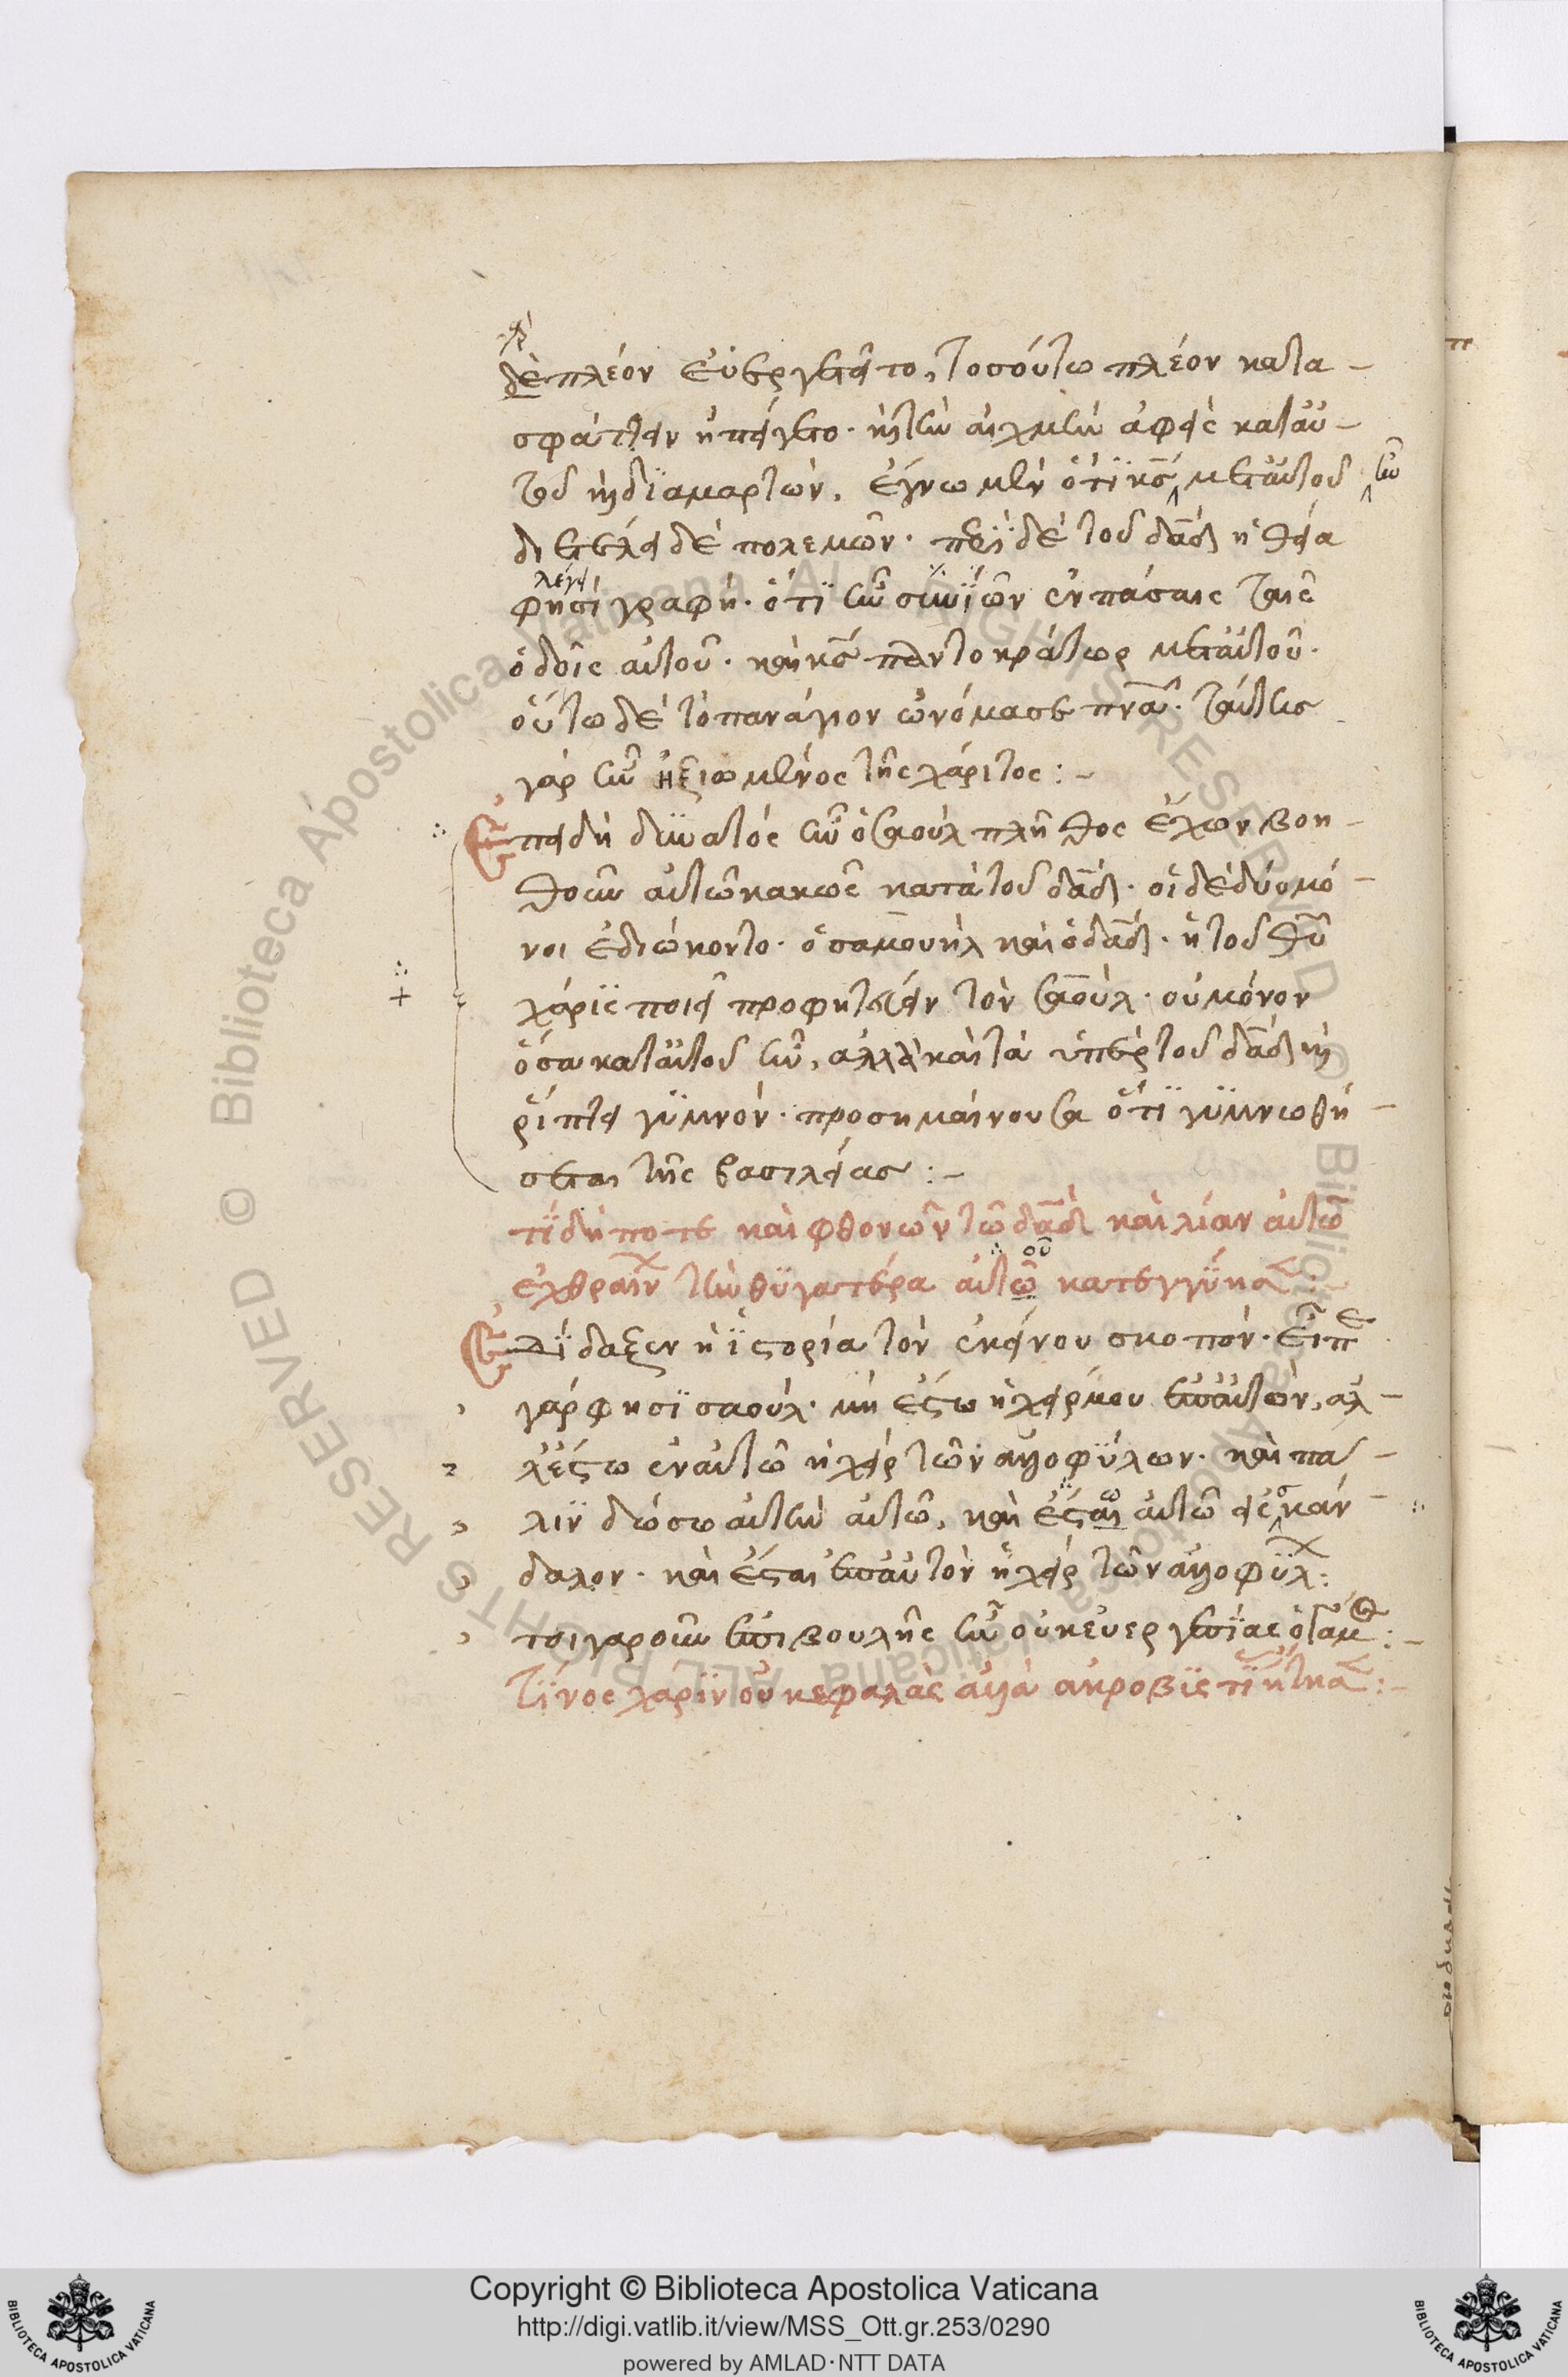 δὲ πλέον εὐεργετεῖτο, τοσούτω πλέον κατα-
σφάττειν ἠπείγετο. κ τὴν αἰχμὴν ἀφεὶς κατ αὐ-
τοῦ κ διαμαρτών. ἔγνω μὲν ὅτι κς μετ αὐτοῦ ἦν
διετέλει δὲ πολεμῶν. περὶ δὲ τοῦ δαδ ἡ θεία
λέγει
φησὶ γραφή. ὅτι ἦν συνϊὼν ἐν πάσαις ταῖς
ὁδοῖς αὐτοῦ. καὶ κς παντοκράτωρ μετ αὐτοῦ.
οὕτω δὲ τὸ πανάγιον ὠνόμασε πνα. ταύτης
γὰρ ἦν ἠξιωμένος τῆς χάριτος:-
Ἐπειδὴ δυνατός ἦν ὁ σαοὺλ πλῆθος ἔχων βοη-
θοῦν αὐτῶ κακῶς κατὰ τοῦ δαδ. οἱ δὲ δύο μό-
νοι ἐδιώκοντο. ὁ σαμουὴλ καὶ ὁ δαδ. ἡ τοῦ θυ
χάρις ποιεῖ προφητεύειν τὸν σαοὺλ. οὐ μόνον
ὅσα κατ αὐτοῦ ἦν, ἀλλὰ καὶ τὰ ὑπὲρ τοῦ δαδ κ
ῥίπτει γυμνόν. προσημαίνουσα ὅτι γυμνωθή-
σεται τῆς βασιλείας:-
τί δή ποτε καὶ φθονῶν τῶ δαδ καὶ λίαν αὐτῶ
οῦ
ἐχθραίν τὴν θυγατέρα αὐτῶ κατεγγύησ:-
Ἐδίδαξεν ἡ ἱστορία τὸν ἐκείνου σκοπόν. εἶπε
γάρ φησι σαούλ. μὴ ἔστω ἡ χείρ μου ἐπ αὐτὸν, ἀλ-
λ ἔστω ἐν αὐτῶ ἡ χεὶρ τῶν ἀλλοφύλων. καὶ πά-
λιν δώσω αὐτὴν αὐτῶ, καὶ ἔσται αὐτῶ εἰς σκάν-
δαλον. καὶ ἔσται ἐπ αὐτὸν ἡ χεὶρ τῶν ἀλλοφύλ:
τοιγαροῦν ἐπιβουλῆς ἦν οὐκ εὐεργεσίας ὁ γάμ:-
Τίνος χάριν οὐ κεφαλὰς ἀλλὰ ἀκροβυστι ἤτησ:-
Copyright © Biblioteca Apostolica Vaticana
http://digi.vatlib.it/view/MSS_Ott.gr.253/0290
powered by AMLAD·NTT DATA